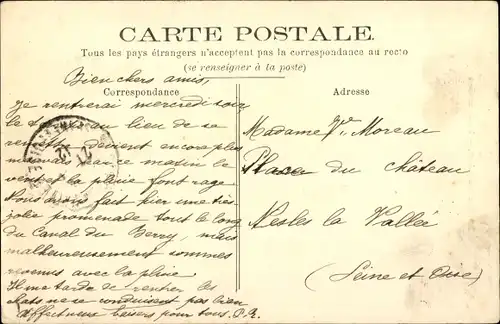 CARTE POSTALE
Tous les pays étrangers n'acceptent pas la correspondance au recto
(se renseigner à la poste)
Correspondance
Adresse
Bien chers amis,
Je rentrerai mercredi soir
le au lieu de se
remettre devient encore plus
mauvais ce matin le
vent et la pluie font rage
Nous avons fait hier une très
jolie promenade tout le long
du Canal du Berry, mais
malheureusement sommes
revenus avec la pluie
Il me tarde de rentrer les
chats ne se conduisent pas bien
Affectueux baisers pour tous. P.R.
Madame Ve Moreau
Place du château
Nesles la Vallée
(Seine et Oise)